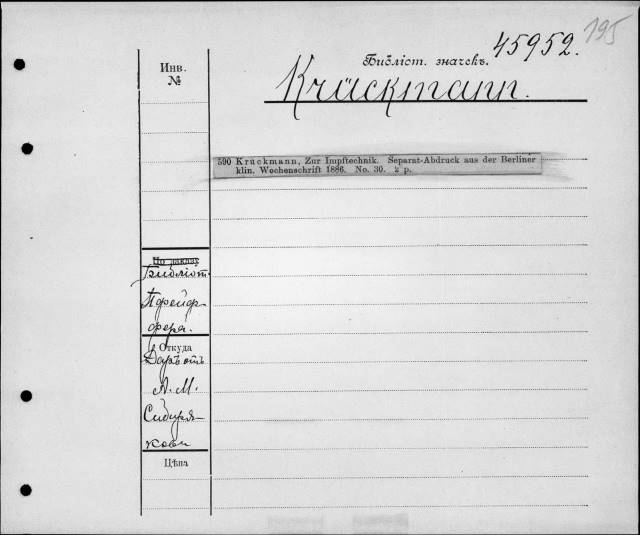 195
45952.
Библіот. значекъ.
Krückmann.
Инв.
№
590 Kruckmann, Zur Impftechnik. Separat-Abdruck aus der Berliner
klin. Wochenschrift 1886. No. 30. 2 p.
По заказу
Библіот.
Пфейф-
фера.
Откуда
Даръ отъ
А. М.
Сибиря-
кова
Цѣна